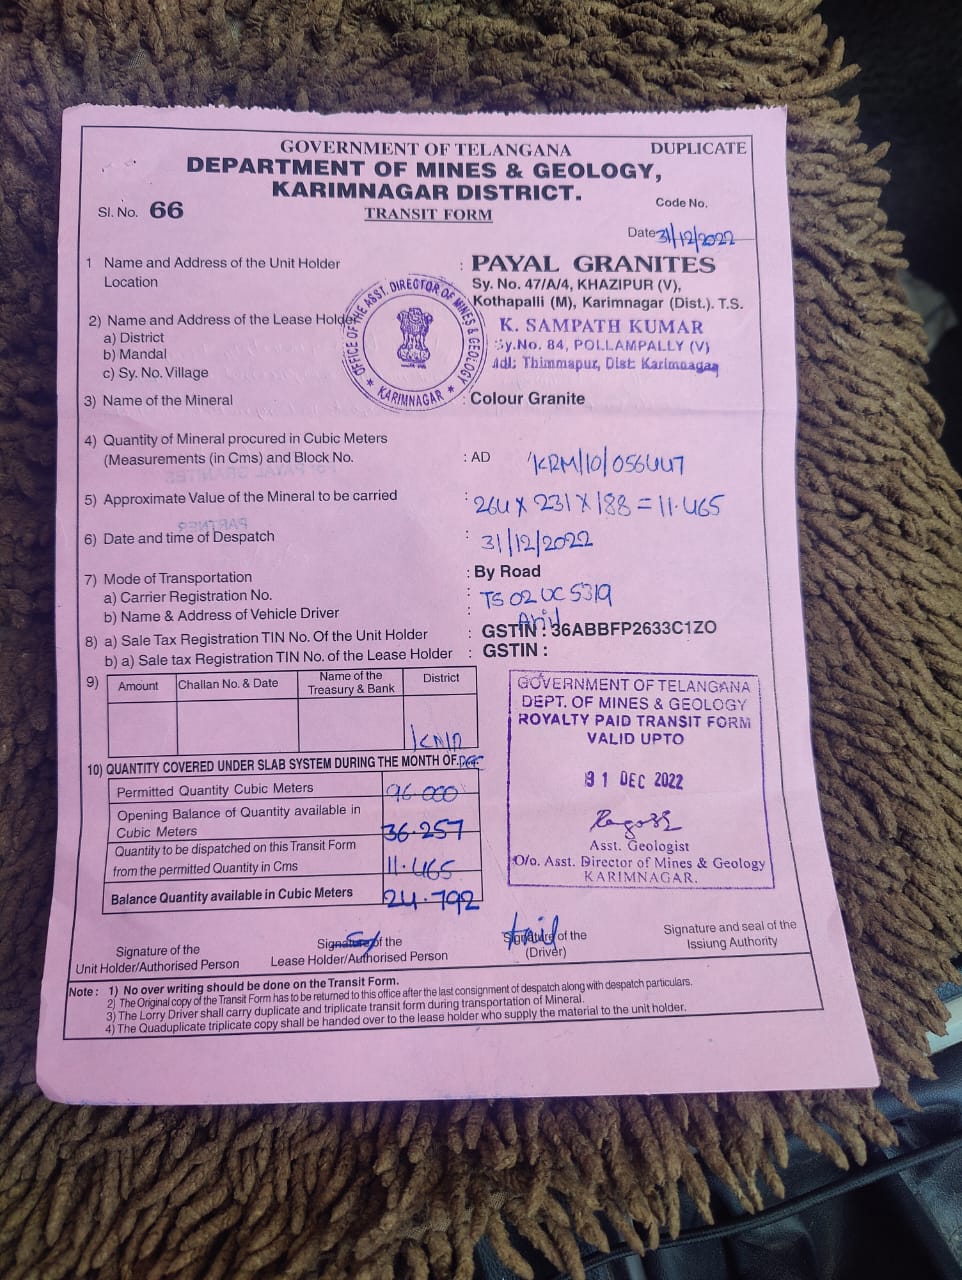 GOVERNMENT OF TELANGANA
DUPLICATE
DEPARTMENT OF MINES & GEOLOGY,
KARIMNAGAR DISTRICT.
Sl. No. 66
TRANSIT FORM
Code No.
Date 31/12/2022
1 Name and Address of the Unit Holder
Location
: PAYAL GRANITES
Sy. No. 47/A/4, KHAZIPUR (V),
Kothapalli (M), Karimnagar (Dist.). T.S.
2) Name and Address of the Lease Holder
a) District
b) Mandal
c) Sy. No. Village
K. SAMPATH KUMAR
Sy.No. 84, POLLAMPALLY (V)
Mdl: Thimmapur, Dist: Karimnagar
OFFICE OF THE ASST. DIRECTOR OF MINES & GEOLOGY
★ KARIMNAGAR ★
3) Name of the Mineral : Colour Granite
4) Quantity of Mineral procured in Cubic Meters
(Measurements (in Cms) and Block No. : AD KRM/10/056447
5) Approximate Value of the Mineral to be carried : 264 X 231 X 188 = 11.465
6) Date and time of Despatch : 31/12/2022
7) Mode of Transportation : By Road
a) Carrier Registration No. : TS 02 UC 5319
b) Name & Address of Vehicle Driver :
8) a) Sale Tax Registration TIN No. Of the Unit Holder : GSTIN : 36ABBFP2633C1ZO
b) a) Sale tax Registration TIN No. of the Lease Holder : GSTIN :
9) Amount Challan No. & Date Name of the Treasury & Bank District
KNR
10) QUANTITY COVERED UNDER SLAB SYSTEM DURING THE MONTH OF. DEC
Permitted Quantity Cubic Meters 96.000
Opening Balance of Quantity available in
Cubic Meters 36.257
Quantity to be dispatched on this Transit Form
from the permitted Quantity in Cms 11.465
Balance Quantity available in Cubic Meters 24.792
GOVERNMENT OF TELANGANA
DEPT. OF MINES & GEOLOGY
ROYALTY PAID TRANSIT FORM
VALID UPTO
31 DEC 2022
Asst. Geologist
O/o. Asst. Director of Mines & Geology
KARIMNAGAR.
Signature of the
Unit Holder/Authorised Person
Signature of the
Lease Holder/Authorised Person
Signature of the
(Driver)
Signature and seal of the
Issiung Authority
Note : 1) No over writing should be done on the Transit Form.
2) The Original copy of the Transit Form has to be returned to this office after the last consignment of despatch along with despatch particulars.
3) The Lorry Driver shall carry duplicate and triplicate transit form during transportation of Mineral.
4) The Quaduplicate triplicate copy shall be handed over to the lease holder who supply the material to the unit holder.